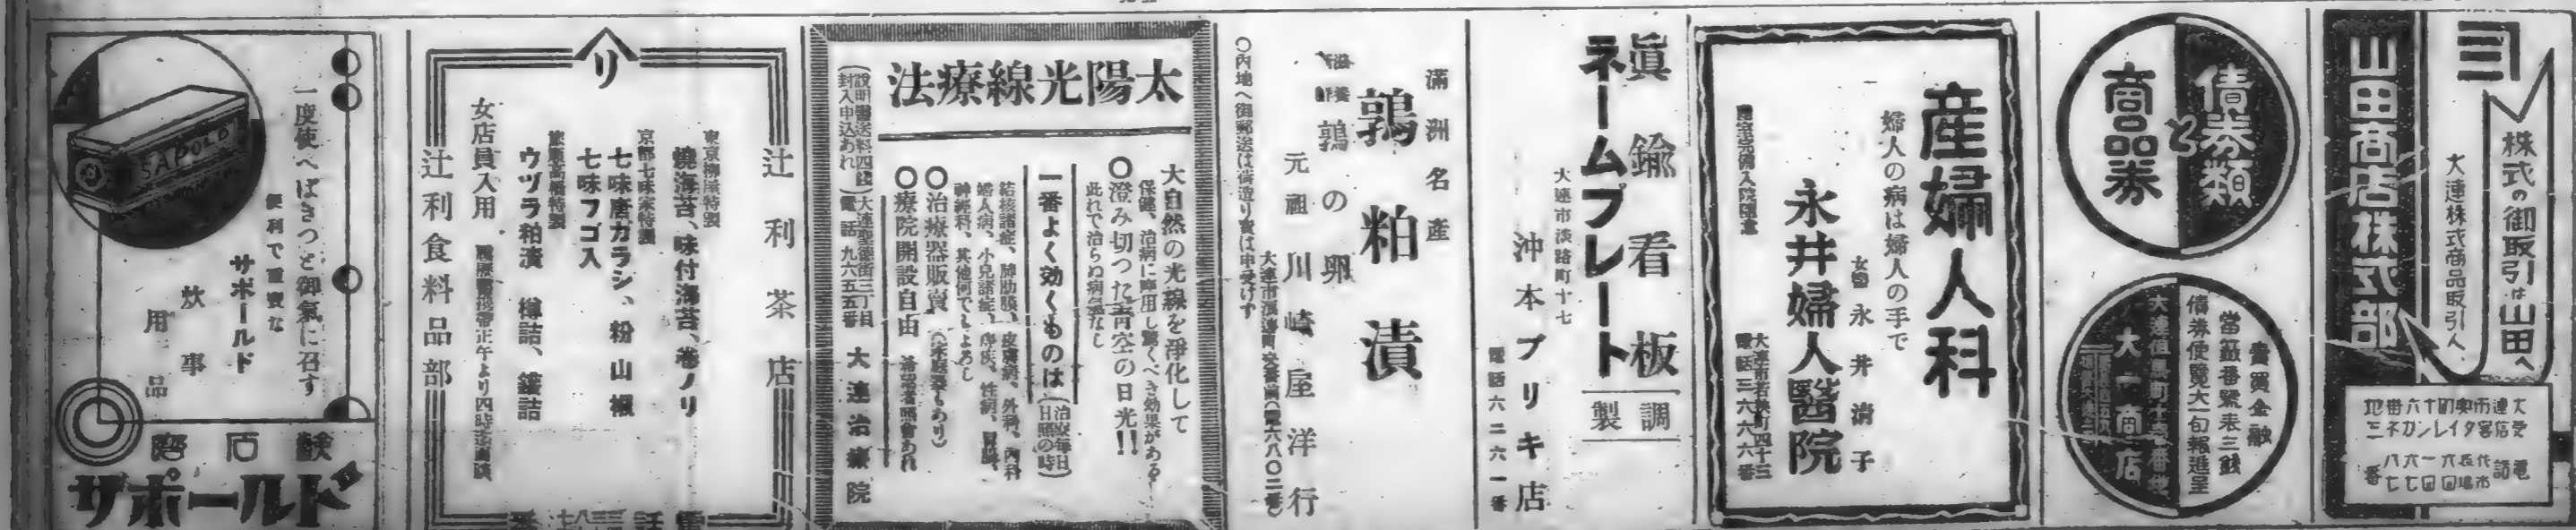 株式の御取引は山田へ
大連株式商品取引人
山田商店株式部
債券類
と
商品券
賣買金融
當籤番號表三銭
債券便覽大一旬報進呈
大一商店
産婦人科
婦人の病は婦人の手で
女醫 永井清子
永井婦人醫院
大連市若狹町四十三
電話三六六六番
眞鍮看板
ネームプレート
調製
大連市淡路町十七
沖本ブリキ店
電話六二六一番
滿洲名產
鶉粕漬
鶉の卵
元祖 川崎屋洋行
○內地へ御郵送は荷造り費は申受けず
太陽光線療法
大自然の光線を淨化して
保健、治病に應用し驚くべき効果がある
○澄み切つた靑空の日光!!
此れで治らぬ病氣なし
一番よく効くものは
(治療每日 日照の時)
結核諸症、肺肋膜、皮膚病、外科、內科
婦人病、小兒諸症、痔疾、性病、胃腸、
神經科、其他何でもよろし
○治療器販賣(家庭器もあり)
○療院開設自由 希望者照會あれ
(說明書送料四錢 封入申込あれ)
大連聖德街三丁目
電話九六五五番
大連治療院
リ
辻利茶店
東京柳屋特製
燒海苔、味付海苔、卷ノリ
京都七味家特製
七味唐ガラシ、粉山椒
七味フゴ入
旅順高橋特製
ウヅラ粕漬 樽詰、罐詰
女店員入用
履歷書携帶正午より四時迄面談
辻利食料品部
一度使へばきつと御氣に召す
便利で重寶な
サポールド
炊事用品
SAPOLD
サポールド